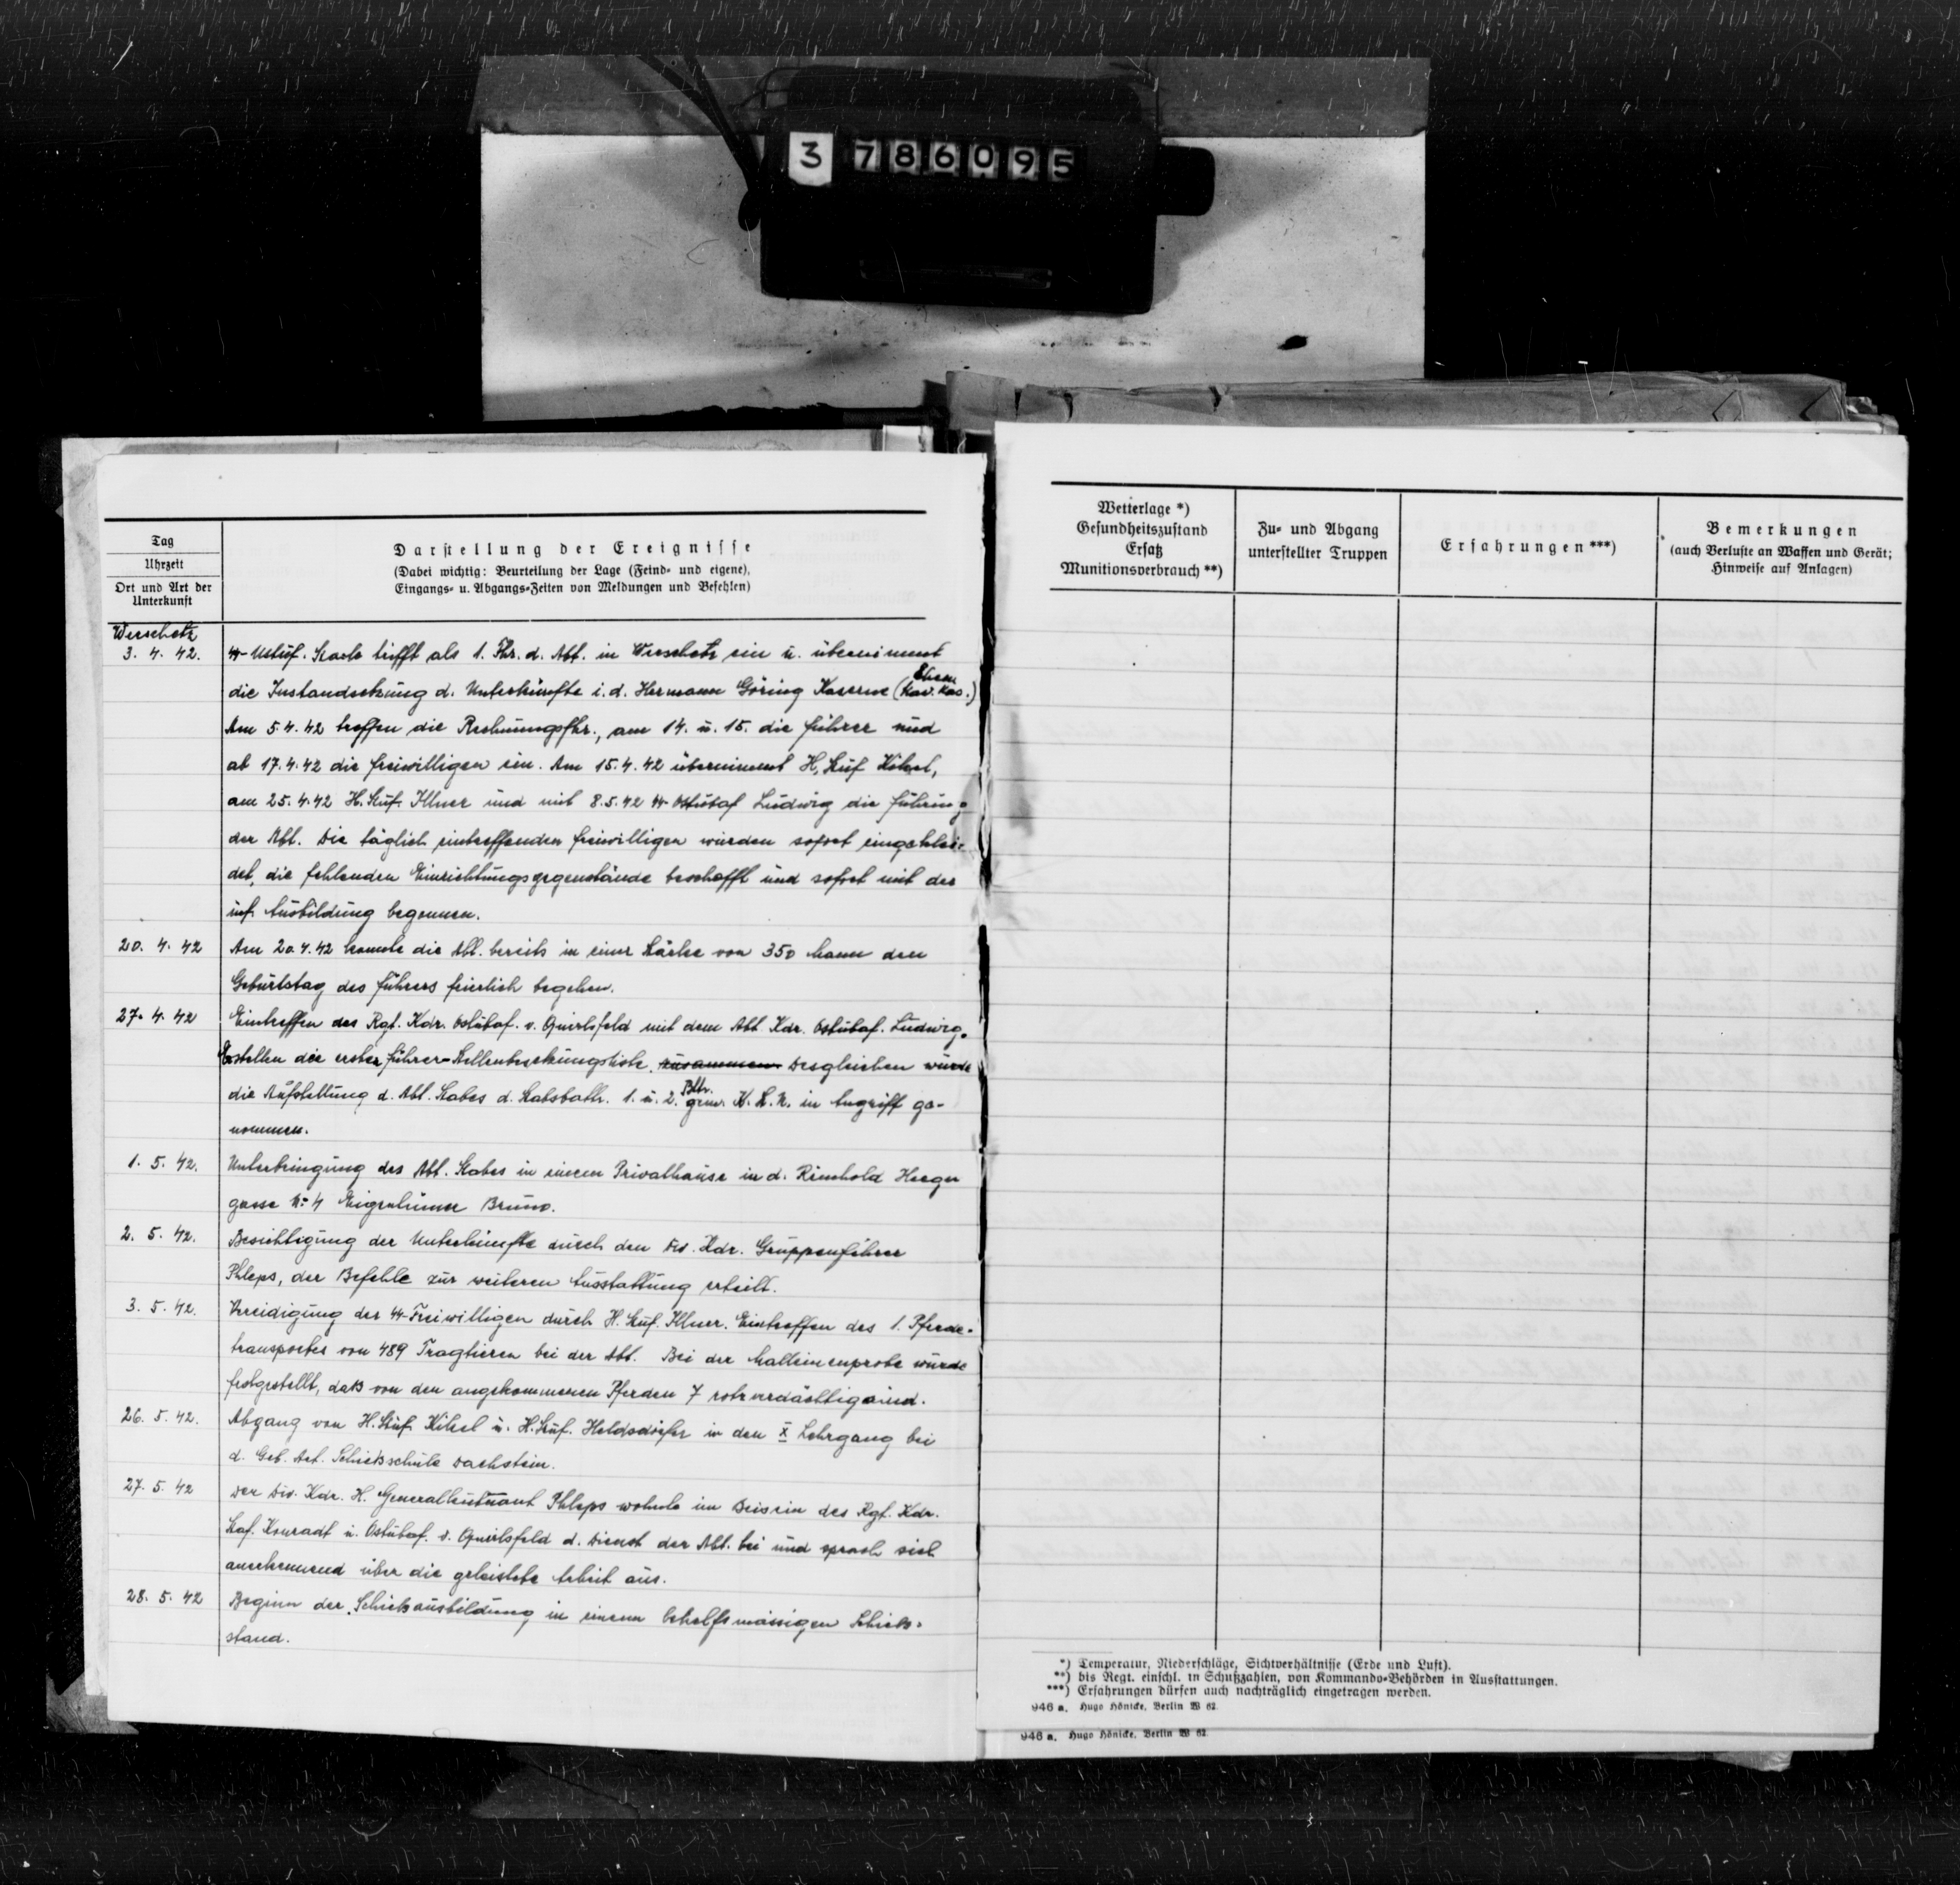 3 786095
Tag
Uhrzeit
Ort und Art der
Unterkunft
Darstellung der Ereignisse
(Dabei wichtig: Beurteilung der Lage (Feind- und eigene),
Eingangs- u. Abgangs-Zeiten von Meldungen und Befehlen)
Werschetz
3. 4. 42. ᛋᛋ-Ustuf. Stark trifft als 1. Fhr. d. Abt. in Werschetz ein u. übernimmt
die Instandsetzung d. Unterkünfte i. d. Hermann Göring Kaserne (Ehem. Kav. Kas.)
Am 5.4.42 treffen die Rechnungsfhr., am 14. u. 15. die Führer und
ab 17.4.42 die Freiwilligen ein. Am 15.4.42 übernimmt H. Stuf
am 25.4.42 H. Stuf. Illner und mit 8.5.42 ᛋᛋ-Ostubaf Ludwig die Führung
der Abt. Die täglich eintreffenden Freiwilligen wurden sofort eingeklei-
det, die fehlenden Einrichtungsgegenstände beschafft und sofort mit der
inf. Ausbildung begonnen.
20. 4. 42 Am 20.4.42 konnte die Abt. bereits in einer Stärke von 350 Mann den
Geburtstag des Führers feierlich begehen.
27. 4. 42 Eintreffen des Rgt. Kdr. Ostubaf. v. Quirlsfeld mit dem Abt. Kdr. Ostubaf. Ludwig.
Erstellen die ersten Führer-Stellenbesetzungsliste. zusammen Desgleichen wurde
die Aufstellung d. Abt. Stabes d. Stabsbattr. 1. u. 2. Bttr. gem. K. St. N. in Angriff ge-
nommen.
1. 5. 42. Unterbringung des Abt. Stabes in einem Privathause in d. Reinhold
gasse No 4 Eigentümer Bruno.
2. 5. 42. Besichtigung der Unterkünfte durch den Div. Kdr. Gruppenführer
Phleps, der Befehle zur weiteren Ausstattung erteilt.
3. 5. 42. Vereidigung der ᛋᛋ-Freiwilligen durch H. Stuf. Illner. Eintreffen des 1. Pferde-
transportes von 489 Tragtieren bei der Abt. Bei der Malleinenprobe wurde
festgestellt, daß von den angekommenen Pferden 7 rotzverdächtig sind.
26. 5. 42. Abgang von H. Stuf. u. H. Stuf. Heldsdörfer in den X Lehrgang bei
d. Geb. Art. Schießschule Dachstein.
27. 5. 42 Der Div. Kdr. H. Generalleutnant Phleps wohnte im Beisein des Rgt. Kdr.
Staf. Konradt u. Ostubaf. v. Quirlsfeld d. Dienst der Abt. bei und sprach sich
anerkennend über die geleistete Arbeit aus.
28. 5. 42 Beginn der Schießausbildung in einem behelfsmässigen Schieß-
stand.
Wetterlage *)
Gesundheitszustand
Ersatz
Munitionsverbrauch **)
Zu- und Abgang
unterstellter Truppen
Erfahrungen ***)
Bemerkungen
(auch Verluste an Waffen und Gerät;
Hinweise auf Anlagen)
*) Temperatur, Niederschläge, Sichtverhältnisse (Erde und Luft).
**) bis Regt. einschl. in Schußzahlen, von Kommando-Behörden in Ausstattungen.
***) Erfahrungen dürfen auch nachträglich eingetragen werden.
946 a. Hugo Hönicke, Berlin W 62.
946 a. Hugo Hönicke, Berlin W 62.